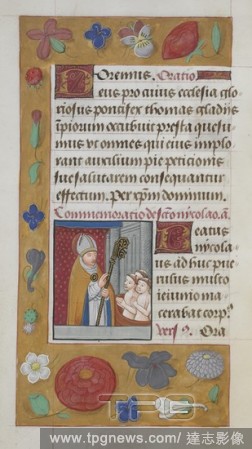 Oremus. Oratio
Deus pro cuius ecclesia glo
riosus pontifex thomas gladijs
impiorum occubuit presta quesu
mus ut omnes qui eius implo
rant auxilium pie peticionis
sue salutarem consequantur
effectum. Per xpm dominum.
Commemoratio de scto nycolao. a.
Beatus
nycola
us adhuc pue
rulus multo
ieiunio ma
cerabat corp9
vers9. Ora
TPG
www.tpgnews.com/達志影像